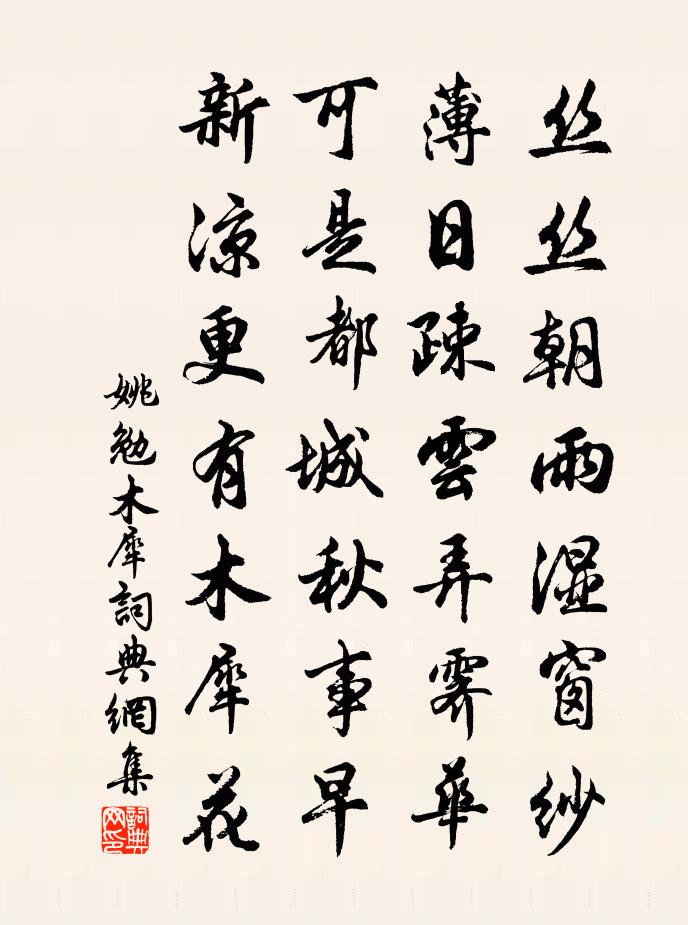 丝丝朝雨湿窗纱
薄日疎雲弄霽華
可是都城秋事早
新凉更有木犀花
姚勉木犀詞典網集
詞典網印